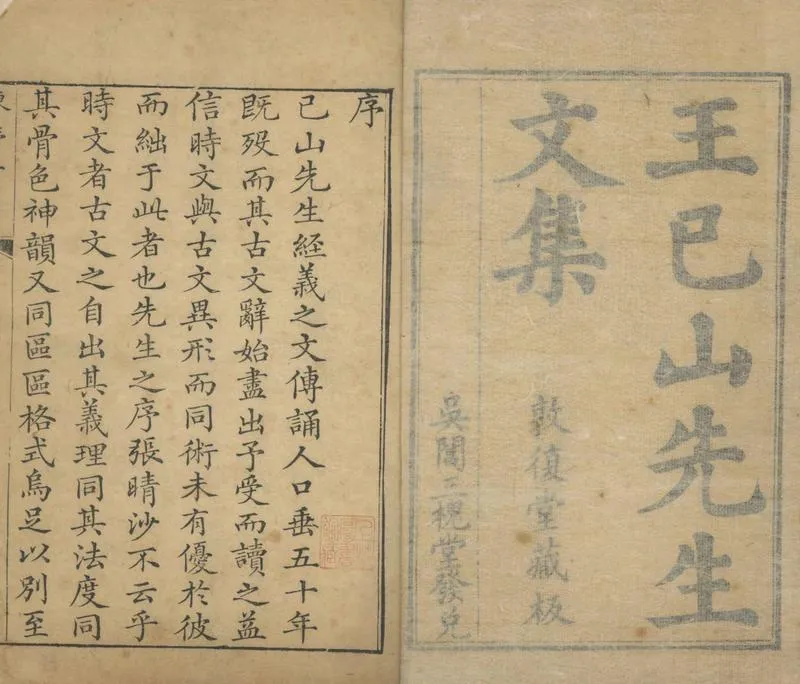 王已山先生
文集
敦復堂藏板
吳閶三槐堂發兌
序
已山先生經義之文傳誦人口垂五十年
既歿而其古文辭始盡出予受而讀之益
信時文與古文異形而同術未有優於彼
而絀于此者也先生之序張晴沙不云乎
時文者古文之自出其義理同其法度同
其骨色神韻又同區區格式烏足以別至